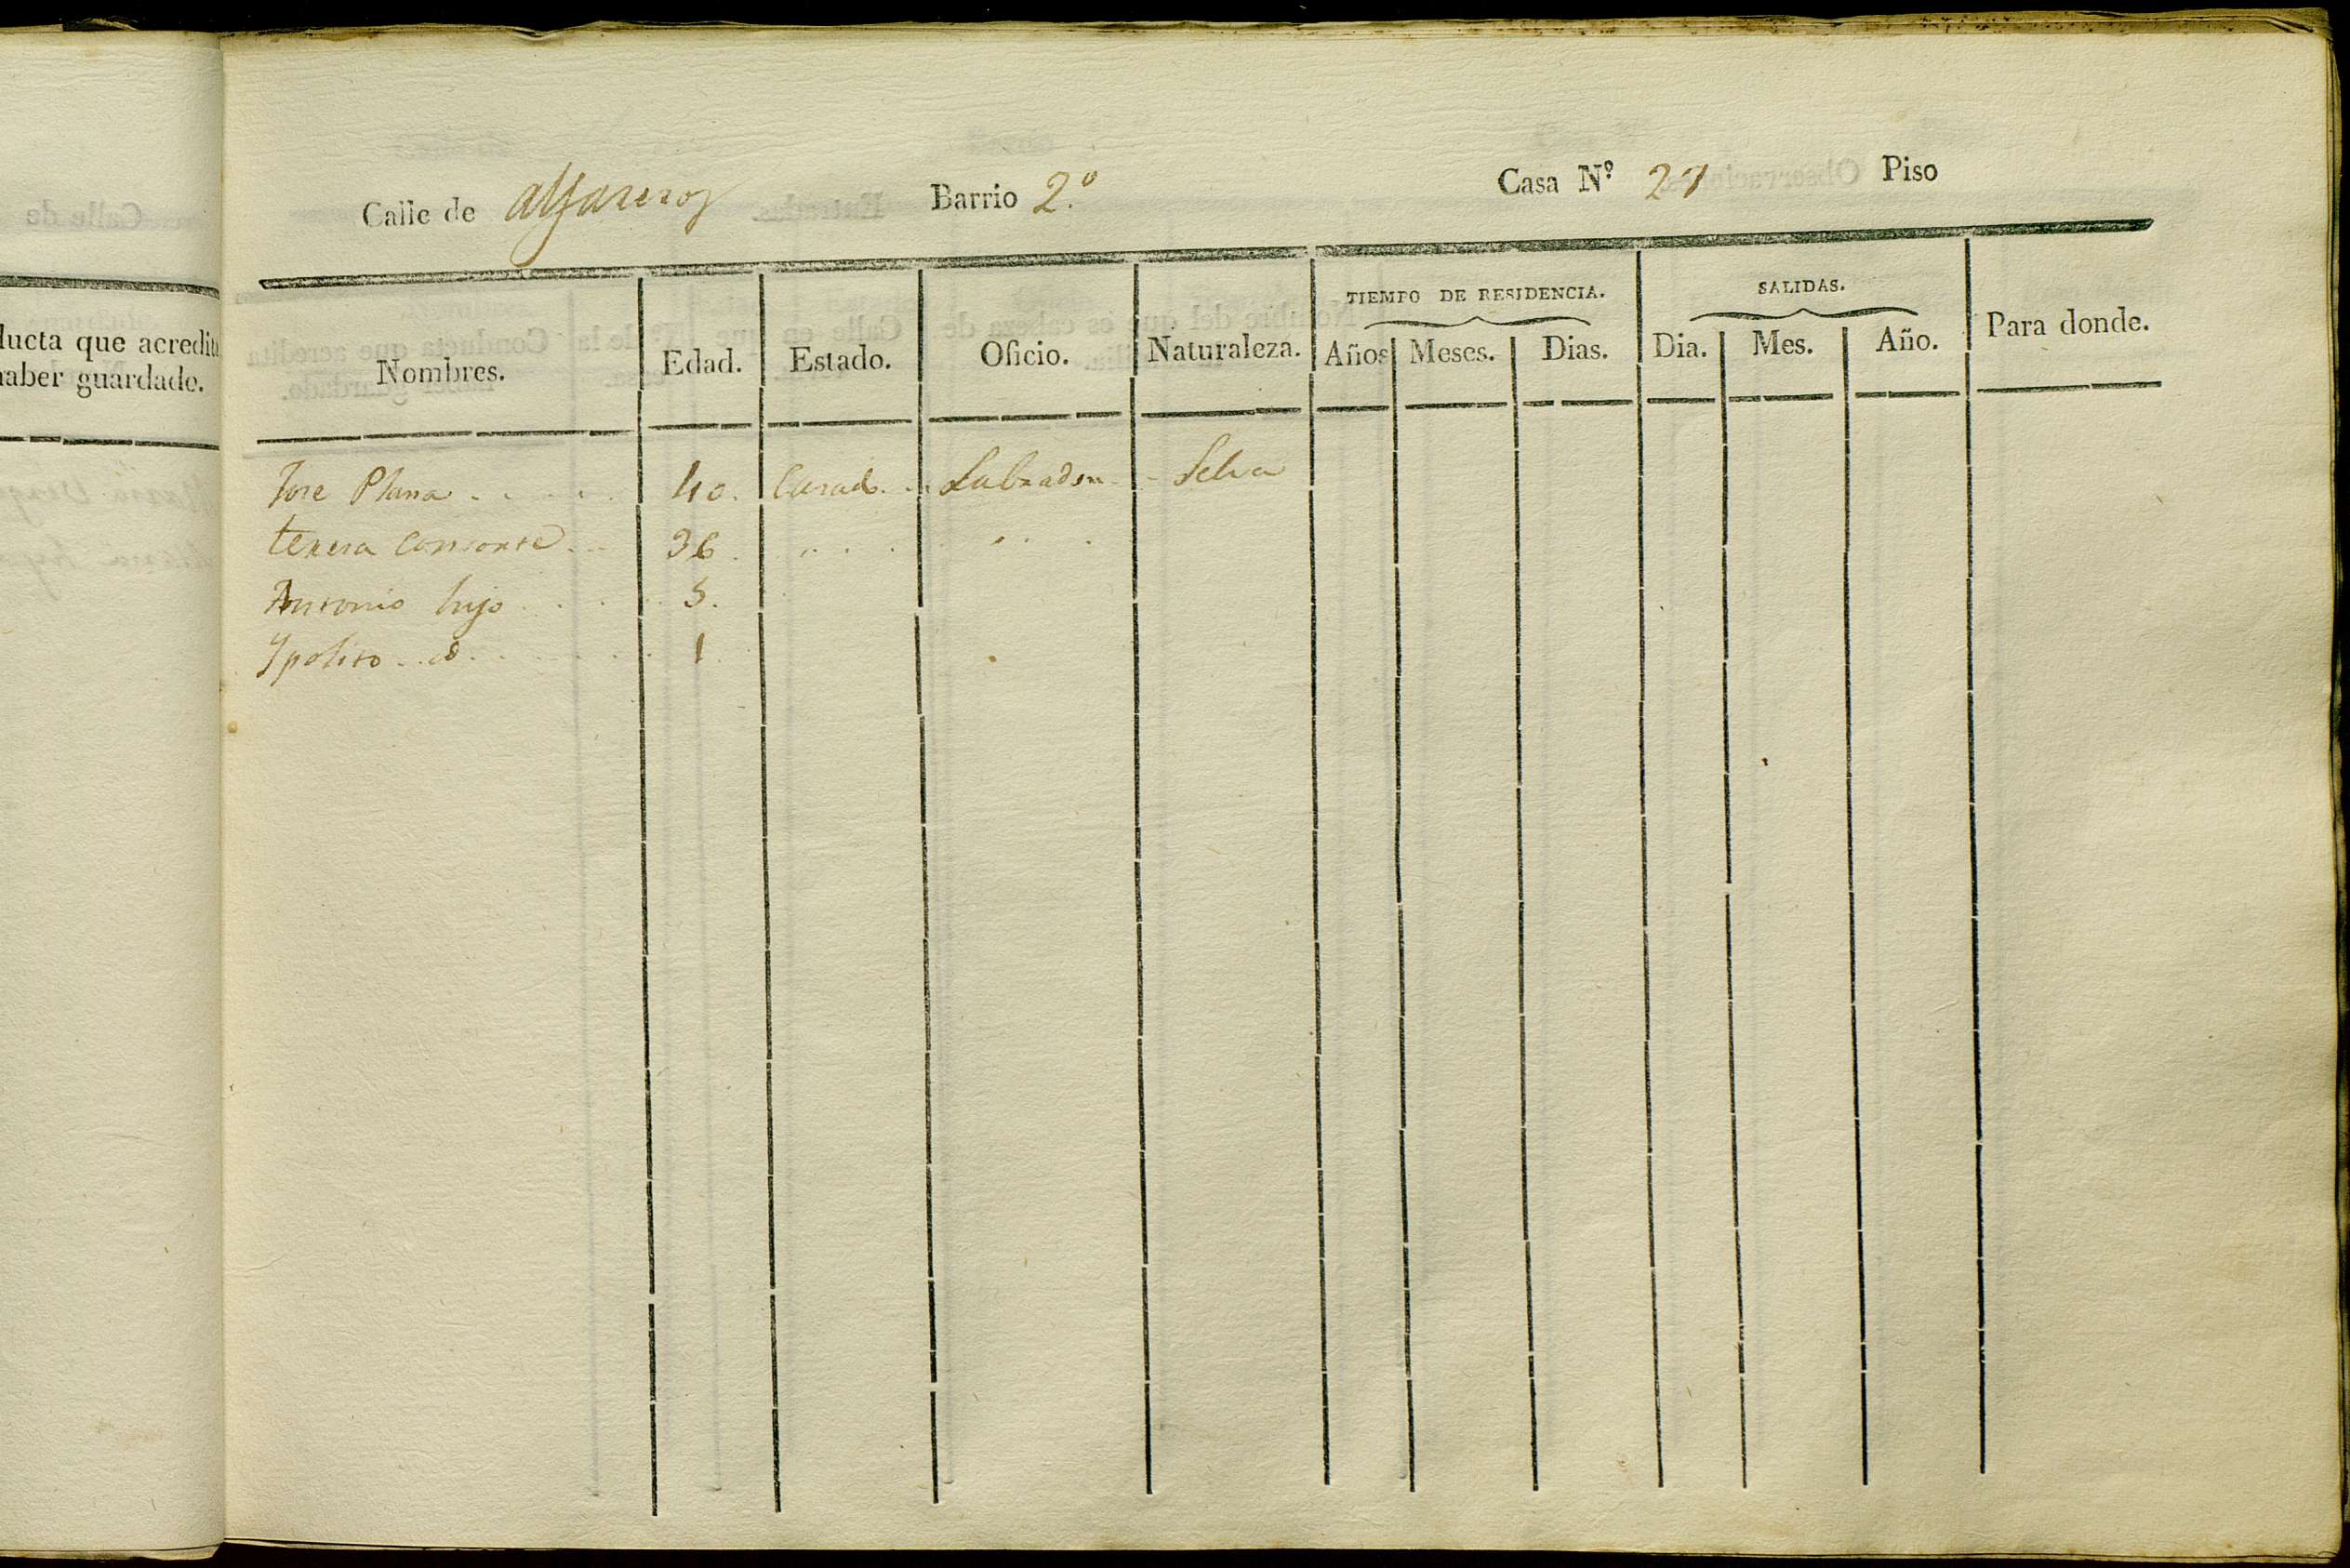 Calle de
ducta que acredita
haber guardado.
Calle de alfareros Barrio 2.º Casa Nº 27 Piso
TIEMPO DE RESIDENCIA. SALIDAS.
Nombres. Edad. Estado. Oficio. Naturaleza. Años Meses. Dias. Dia. Mes. Año. Para donde.
Jose Plana . . . . . 40. Casado. . . Labrador - - Selva
teresa consorte . . . 36 . . . . . . . .
Antonio hijo . . . . . 5.
Ypolito . . id. . . . . . . 1.